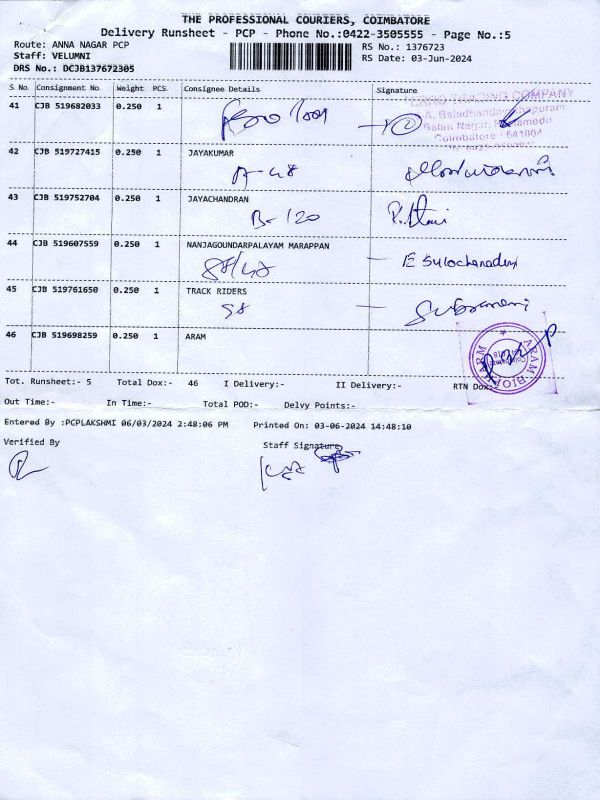 THE PROFESSIONAL COURIERS, COIMBATORE
Delivery Runsheet - PCP - Phone No.:0422-3505555 - Page No.:5
Route: ANNA NAGAR PCP
RS No.: 1376723
Staff: VELUMNI
RS Date: 03-Jun-2024
DRS No.: DCJB137672305
S No. Consignment No. Weight PCS. Consignee Details Signature
41 CJB 519682033 0.250 1
TRADING COMPANY
Coimbatore - 641004
42 CJB 519727415 0.250 1 JAYAKUMAR
A-48
43 CJB 519752704 0.250 1 JAYACHANDRAN
B-120
44 CJB 519607559 0.250 1 NANJAGOUNDARPALAYAM MARAPPAN
88/48 E Sulochanadevi
45 CJB 519761650 0.250 1 TRACK RIDERS
98 Subramani
46 CJB 519698259 0.250 1 ARAM
ARAM BIOPHARM
Tot. Runsheet:- 5 Total Dox:- 46 I Delivery:- II Delivery:- RTN Dox:
Out Time:- In Time:- Total POD:- Delvy Points:-
Entered By :PCPLAKSHMI 06/03/2024 2:48:06 PM Printed On: 03-06-2024 14:48:10
Verified By Staff Signature